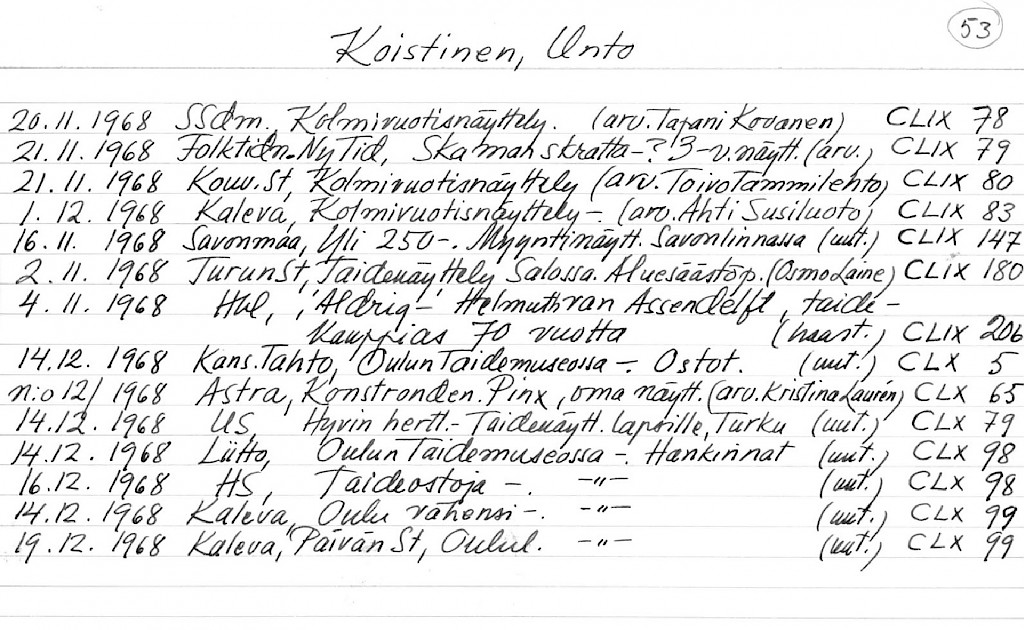 53
Koistinen, Unto
20.11.1968 SSdm., Kolmivuotisnäyttely. (arv. Tapani Kovanen) CLIX 78
21.11.1968 Folktidn. Ny Tid, Ska man skratta-? 3-v. näytt. (arv.) CLIX 79
21.11.1968 Kouv.St, Kolmivuotisnäyttely (arv. Toivo Tammilehto) CLIX 80
1.12.1968 Kaleva, Kolmivuotisnäyttely-. (arv. Ahti Susiluoto) CLIX 83
16.11.1968 Savonmaa, Yli 250-. Myyntinäytt. Savonlinnassa (uut.) CLIX 147
2.11.1968 TurunSt, Taidenäyttely Salossa. Aluesäästöp. (Osmo Laine) CLIX 180
4.11.1968 Hbl, 'Aldrig-' Helmuth van Assendelft, taide-
kauppias 70 vuotta (haast.) CLIX 206
14.12.1968 Kans.Tahto, Oulun Taidemuseossa-. Ostot. (uut.) CLX 5
n:o 12/1968 Astra, Konstronden. Pinx, oma näytt. (arv. Kristina Laurén) CLX 65
14.12.1968 US, Hyvin hertt.- Taidenäytt. lapsille, Turku (uut.) CLX 79
14.12.1968 Liitto, Oulun Taidemuseossa-. Hankinnat (uut.) CLX 98
16.12.1968 HS, Taideostoja -. -"- (uut.) CLX 98
14.12.1968 Kaleva, Oulu vähensi-. -"- (uut.) CLX 99
19.12.1968 Kaleva, Päivän St, Oulul. -"- (uut.) CLX 99